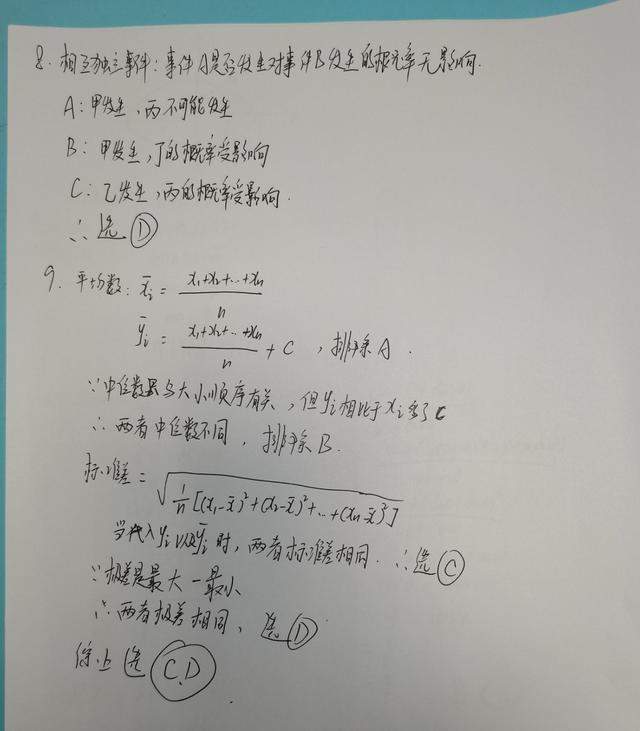 8. 相互独立事件：事件A是否发生对事件B发生的概率无影响.
A：甲发生，丙不可能发生
B：甲发生，丁的概率受影响
C：乙发生，丙的概率受影响.
∴选 D
9. 平均数：x̄i = (x1+x2+…+xn)/n
ȳi = (x1+x2+…+xn)/n + C ，排除A.
∵中位数只与大小顺序有关，但yi相比于xi多了C
∴两者中位数不同，排除B.
标准差 = √(1/n[(x1-x̄)²+(x2-x̄)²+…+(xn-x̄)²])
当代入yi以及ȳi时，两者标准差相同. ∴选 C
∵极差是最大－最小
∴两者极差相同，选 D
综上选 C.D